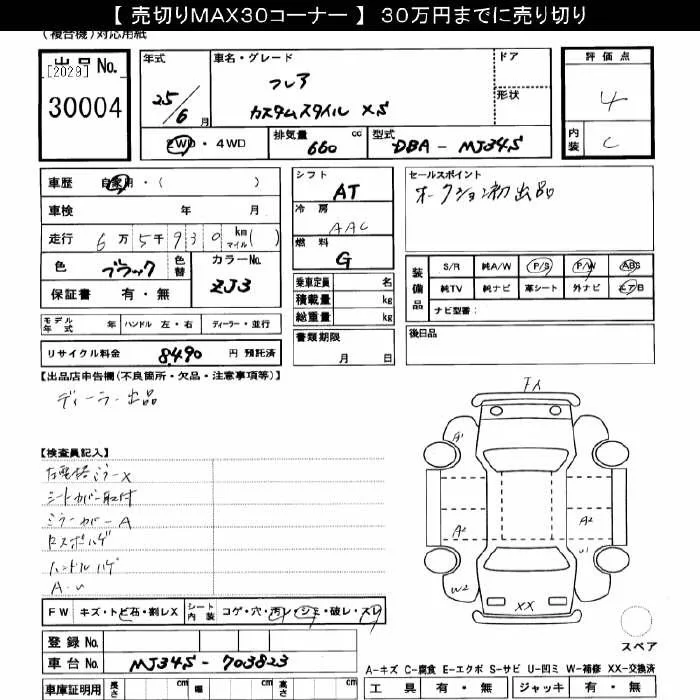 【 売切りMAX30コーナー 】 30万円までに売り切り
(複合機)対応用紙
出品 No.
[2029]
30004
年式
25/6 月
車名・グレード
フレア
カスタムスタイル XS
ドア
形状
評価点
4
内装
C
2WD・4WD
排気量 660 cc
型式 DBA - MJ34S
車歴 自家用・( )
車検 年 月
走行 6万5千930 km マイル( )
色 ブラック 色替
カラーNo.
ZJ3
保証書 有・無
シフト
AT
冷房
AAC
燃料
G
乗車定員 名
積載量 kg
総重量 kg
セールスポイント
オークション初出品
装備品
S/R 純A/W P/S P/W ABS
純TV 純ナビ 革シート 外ナビ エアB
ナビ型番:
モデル年式 年 ハンドル 左・右 ディーラー・並行
書類期限
月 日
後日品
リサイクル料金 8490 円 預託済
【出品店申告欄(不良箇所・欠品・注意事項等)】
ディーラー出品
FA
【検査員記入】
シートカバー取付
ミラーカバーA
ハンドルハゲ
A・U
A1
A2
A2
U1
W2
XX
FW キズ・トビ石・割レX シート内装 コゲ・穴・汚レ・シミ・破レ・スレ
登録 No.
車台 No. MJ34S - 703823
車庫証明用 長さ cm 幅 cm 高さ cm
スペア
A-キズ C-腐食 E-エクボ S-サビ U-凹ミ W-補修 XX-交換済
工具 有・無 ジャッキ 有・無